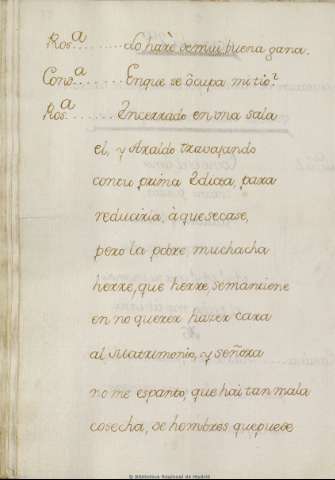 Ros.ª ........ Lo harè de mui buena gana.
Cons.ª ........ Enque se òcupa mi tio?
Ros.ª ........ Encerrado en una sala
el, y Araldo travajando
con tu prima Edicta, para
reducirla, à que se case,
pero la pobre, muchacha
herre, que herre se mantiene
en no querer hazer cara
al Matrimonio, y señora
no me espanto, que hai tan mala
cosecha, de hombres que puede
© Biblioteca Nacional de España